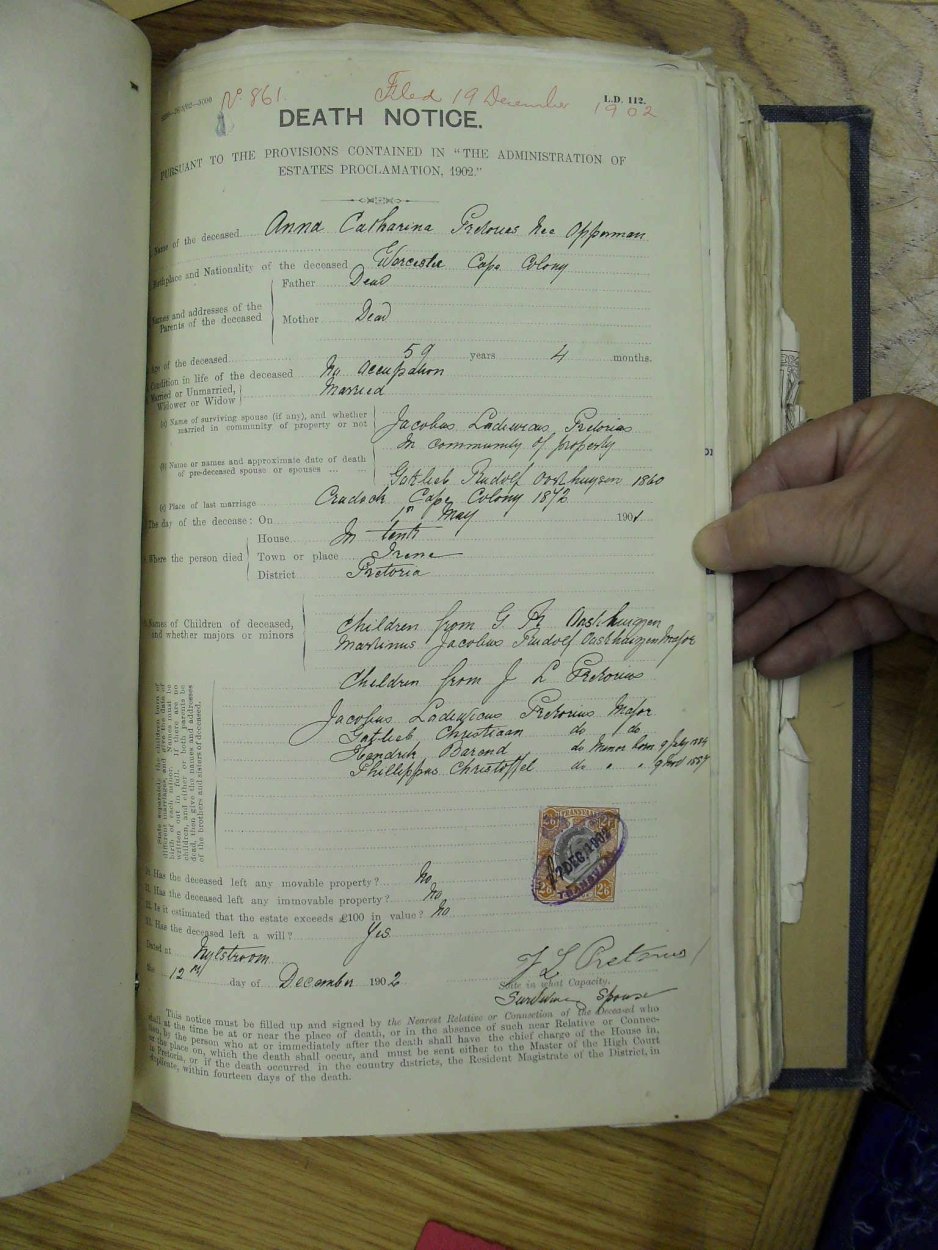 No. 861. Filed 19 December 1902
L.D. 112.
DEATH NOTICE.
PURSUANT TO THE PROVISIONS CONTAINED IN "THE ADMINISTRATION OF
ESTATES PROCLAMATION, 1902."
Name of the deceased Anna Catharina Pretorius nee Opperman
Birthplace and Nationality of the deceased Worcester Cape Colony
Names and addresses of the Parents of the deceased
Father Dead
Mother Dead
Age of the deceased 59 years 4 months.
Condition in life of the deceased No occupation
Married or Unmarried, Widower or Widow Married
(a) Name of surviving spouse (if any), and whether married in community of property or not
Jacobus Lodewicus Pretorius
In community of property
(b) Name or names and approximate date of death of pre-deceased spouse or spouses ... ...
Gotlieb Rudolf Oosthuysen 1860
(c) Place of last marriage Cradock Cape Colony 1872
The day of the decease: On 1st May 1901
Where the person died
House In tents
Town or place Irene
District Pretoria
Names of Children of deceased, and whether majors or minors
Children from G. R. Oosthuizen
Martinus Jacobus Rudolf Oosthuizen Major
Children from J L Pretorius
Jacobus Lodewicus Pretorius Major
Gotlieb Christiaan do do
Hendrik Barend do Minor born 9 July 1884
Phillippus Christoffel do " " 9 Nov 1887
State separately the children born of
different marriages, and give the date of
birth of each minor. Names must be
written out in full. If there are no
children, and either or both parents be
dead, then give the names and addresses
of the brothers and sisters of deceased.
10. Has the deceased left any movable property? No
11. Has the deceased left any immovable property? No
12. Is it estimated that the estate exceeds £100 in value? No
13. Has the deceased left a will? Yes
TRANSVAAL
2/6 2/6
17 DEC. 1902
TRANSVAAL
Dated at Nylstroom
the 12th day of December 1902
J L Pretorius
State in what Capacity.
Surviving Spouse
This notice must be filled up and signed by the Nearest Relative or Connection of the Deceased who
shall at the time be at or near the place of death, or in the absence of such near Relative or Connec-
tion, by the person who at or immediately after the death shall have the chief charge of the House in,
or the place on, which the death shall occur, and must be sent either to the Master of the High Court
in Pretoria, or if the death occurred in the country districts, the Resident Magistrate of the District, in
duplicate, within fourteen days of the death.